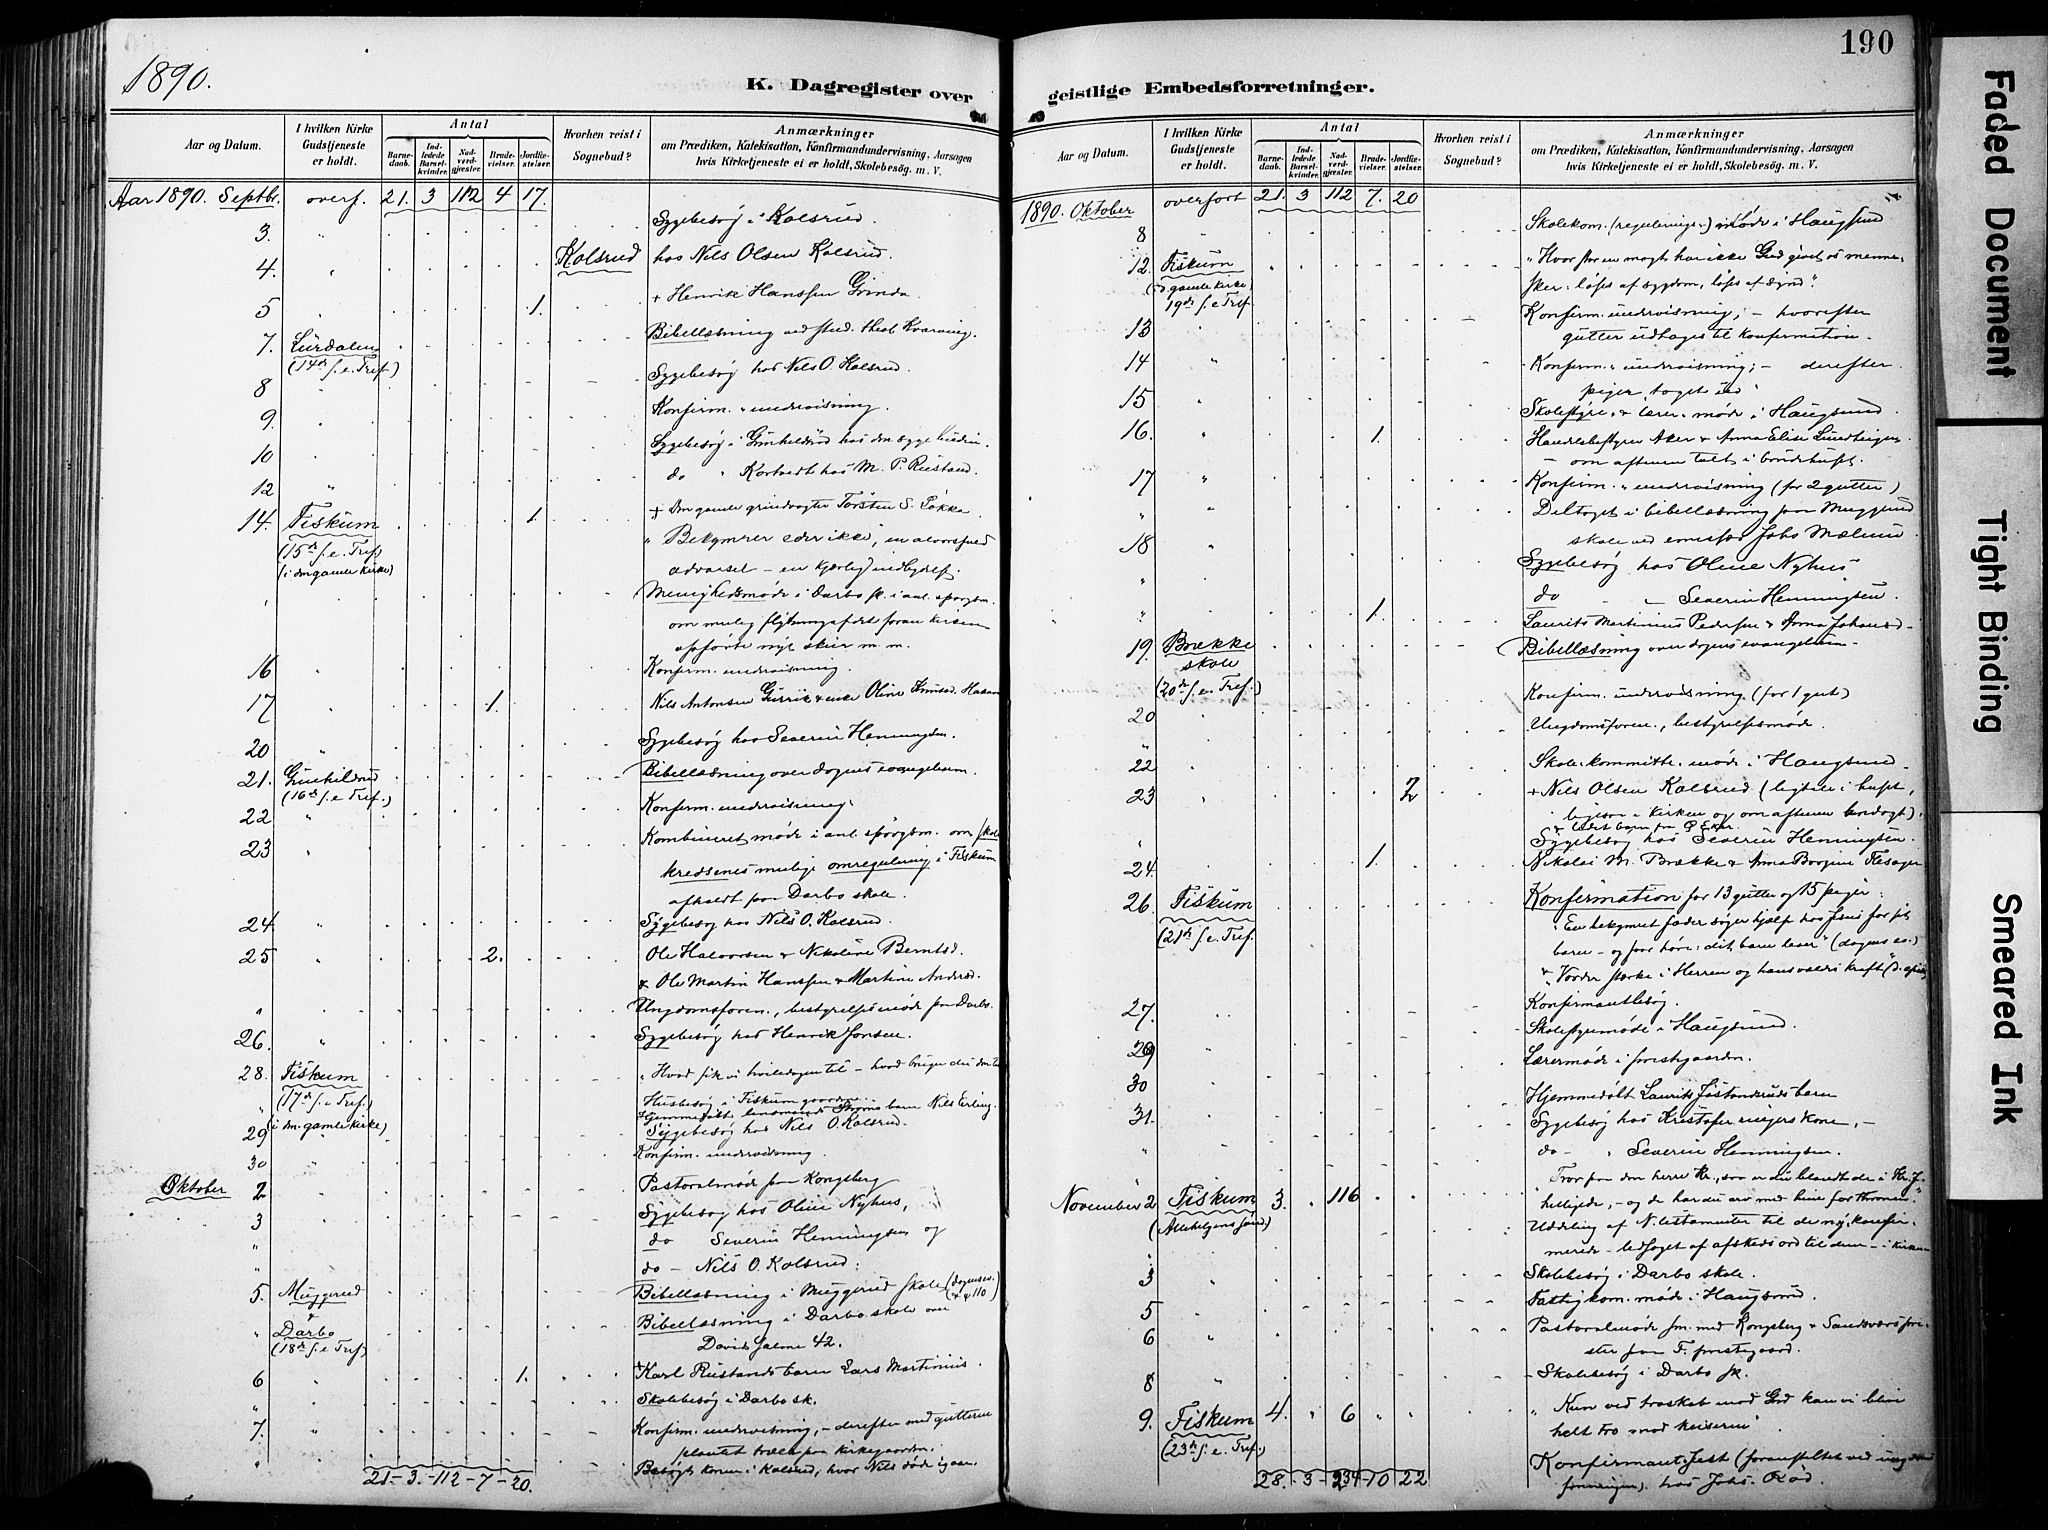 1890.
K. Dagregister over
Aar og Datum.
I hvilken Kirke Gudstjeneste er holdt.
Antal
Barnedaab.
Indledede Barselkvinder.
Nadverdgjæster.
Brudevielser.
Jordfæstelser.
Hvorhen reist i Sognebud?
Anmærkninger
om Prædiken, Katekisation, Konfirmandundervisning, Aarsagen
hvis Kirketjeneste ei er holdt, Skolebesøg. m. V.
Aar 1890. Septbr. overf. 21. 3 112 4 17.
3. " Sygebesøg i Kolsrud.
4. " Kolsrud hos Nils Olsen Kolsrud.
5 " 1. + Henrik Hanssen Grinda
7. Lurdalen Bibellæsning ved stud. theol Kvarving.
(14de s. e. Tref.)
8 " Sygebesøg hos Nils O. Kolsrud.
9. " Konfirm. undervisning.
10 " Sygebesøg i Gunhildrud hos
12 " do " Kortvedt hos M. P. Rustand.
14. Fiskum 1. + Den gamle grindvogter Torsten S. Løkka
(15de s. e. Tref.) " Bekymrer eder ikke, en alvorsfuld
(i den gamle kirke) advarsel – en kjærlig indbydelse.
Menighedsmøde i Darbo sk. i anl. spørgsm.
om mulig flytning af det foran kirken
opførte nye skur m. m.
16 " Konfirm. undervisning.
17 " 1. Nils Antonsen & enke Oline Knudsd.
20 " Sygebesøg hos Severin Henningsen.
21. Gunhildrud Bibellæsning over dagens evangelium.
(16de s. e. Tref.)
22 " Konfirm. undervisning.
23 " Kombineret møde i anl. spørgsm. om skole
kredsenes mulige omregulering i Fiskum
afholdt paa Darbo skole.
24 " Sygebesøg hos Nils O. Kolsrud.
25 " 2. Ole Halvorsen & Nikoline Berntsd.
& Ole Martin Hanssen & Martine Andersd.
" Ungdomsforen., bestyrelsesmøde paa Darbo.
26. " Sygebesøg hos Henrik Jonsen.
28. Fiskum " Hvad fik vi hviledagen til – hvad bruger du den til
(17de s. e. Tref.) Husbesøg i Fiskum gaardene.
(i den gamle kirke) Hjemmedøbt lensmand Strøms barn Nils Erling.
29 Sygebesøg hos Nils O. Kolsrud.
30 " Konfirm. undervisning.
Oktober 2 " Pastoralmøde paa Kongsberg
3 " Sygebesøg hos Oline Nyhus,
" do Severin Henningsen og
" do – Nils O. Kolsrud.
5. Muggerud Bibellæsning i Muggerud skole (dagens ev. & 110)
&
" Darbo Bibellæsning i Darbo skole over
(18de s. e. Tref) Davids salme 42.
6 " 1. + Karl Rustands barn Lars Martinius.
" Skolebesøg i Darbo sk.
7. " Konfirm. undervisning, – derefter med gutterne
plantet træer paa kirkegaarden.
" Besøgt konen i Kolsrud, hvor Nils døde igaar.
21 – 3. – 112 – 7 – 20.
190
geistlige Embedsforretninger.
Aar og Datum.
I hvilken Kirke Gudstjeneste er holdt.
Antal
Barnedaab.
Indledede Barselkvinder.
Nadverdgjæster.
Brudevielser.
Jordfæstelser.
Hvorhen reist i Sognebud?
Anmærkninger
om Prædiken, Katekisation, Konfirmandundervisning, Aarsagen
hvis Kirketjeneste ei er holdt, Skolebesøg. m. V.
1890. Oktober overført 21. 3 112 7. 20
8 " Skolekom. (regulerings-) møde i Haugsund
12. Fiskum " Hvor stor en magt har ikke Gud givet os menne-
(d. gamle kirke) sker: løses af sygdom, løses af synd"
19de s. e. Tref.
13 " Konfirm. undervisning; – hvorefter
gutter udtages til konfirmation.
14 " Konfirm. undervisning; – derefter
piger taget ud
15 " Skolestyre- & lærer-møde i Haugsund.
16. " 1. Handelsbestyrer Aker & Anna Elise Lundteigen
– om aftenen talt i brudehuset.
17 " Konfirm. undervisning (for 2 gutter)
" Deltaget i bibellæsning paa Muggerud
18 " skole ved emissær Johs Mælum
" Sygebesøg hos Oline Nyhus
do – Severin Henningsen.
" 1. Laurits Martinius Pedersen & Anna Johansd.
19. Brække Bibellæsning over dagens evangelium
skole
(20de s. e. Tref.) Konfirm. undervisning (for 1 gut)
20 Ungdomsforen., bestyrelsesmøde.
22 Skole-kommitte-møde i Haugsund
23 " 2 + Nils Olsen Kolsrud (ligtale i huset,
ligesaa i kirken og om aftenen andagt).
& lidet barn fra P Eker.
" Sygebesøg hos Severin Henningsen.
24. 1. Nikolai M. Brække & Anna Borgine Flesager
26. Fiskum Konfirmation for 13 gutter og 15 piger:
(21de s. e. Tref. "En bekymret fader søger hjælp hos Jesus for sit
barn – og faar høre: dit barn lever" (dagens ev.)
& "Vorder stærke i Herren og hans vældes kraft"
27. " Konfirmantbesøg.
Skolestyremøde i Haugsund.
29 " Lærermøde i prestegaarden.
30 " Hjemmedøbt Laurits Jøstandruds barn
31. " Sygebesøg hos Kristofer ringers kone, –
" do – " Severin Henningsen.
November 2 Fiskum 3. " 116 "Tror paa den herre Kr., saa er du blandt de i Kr. J.
(Allehelgens sønd) helligede, – og da har du arv med hine for thronen."
Uddeling af N. testamenter til de ny konfir-
merede – ledsaget af afskedsord til dem – i kirken
3 " Skolebesøg i Darbo skole.
5 " Fattigkom. møde i Haugsund.
6 " Pastoralmøde sm. med Kongsberg & Sandsværs pre-
ster paa F. prestegaard.
8 " Skolebesøg i Darbo sk.
9. Fiskum 4. " 6 " Kun ved troskab mod Gud kan vi blive
(23de s. e. Tref.) helt tro mod keiseren"
Konfirmant-fest (foranstaltet ved ungdoms
foreningen) hos Johs. Rød.
28. – 3 – 234 – 10 22
Faded Document
Tight Binding
Smeared Ink